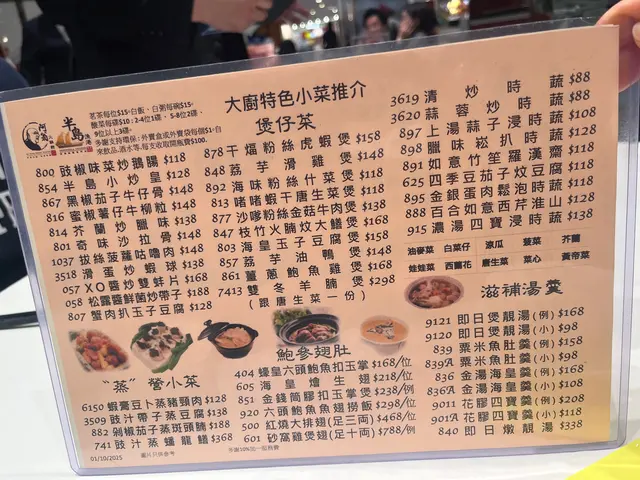 茗茶每位$15·白飯，白粥每碗$15·
酸菜每碟$10：2-4位1碟，5-8位2碟，
9位以上3碟·
多謝支持環保：外賣盒或外賣袋每個$1·自
來飲品,酒水等,每支收取開瓶費$100.
半島
大廚特色小菜推介
煲仔菜
800 豉椒味菜炒鵝腸 $118
854 半島小炒皇 $128
867 黑椒茄子牛仔骨 $148
816 蜜椒薯仔牛柳粒 $148
814 芥蘭炒臘味 $138
801 奇味沙拉骨 $148
1037 拔絲菠蘿咕嚕肉 $148
3518 滑蛋炒蝦球 $138
057 XO醬炒雙蚌片 $168
058 松露醬鮮菌炒帶子 $188
807 蟹肉扒玉子豆腐 $128
878 干煏粉絲虎蝦煲 $158
848 荔芋滑雞煲 $148
892 海味粉絲什菜煲 $118
813 啫啫蝦干唐生菜煲 $118
877 沙嗲粉絲金菇牛肉煲 $98
847 枝竹火腩炆大鱔煲 $168
803 海皇玉子豆腐煲 $158
857 荔芋油鴨煲 $148
861 薑蔥鮑魚雞煲 $168
7413 雙冬羊腩煲 $298
(跟唐生菜一份)
3619 清炒時蔬 $88
3620 蒜蓉炒時蔬 $88
897 上湯蒜子浸時蔬 $108
898 臘味崧扒時蔬 $128
891 如意竹笙羅漢齋 $118
625 四季豆茄子炆豆腐 $118
895 金銀蛋肉鬆泡時蔬 $118
888 百合如意西芹淮山 $128
915 濃湯四寶浸時蔬 $138
油麥菜 白菜仔 涼瓜 菠菜 芥蘭
娃娃菜 西蘭花 唐生菜 菜心 黃帝菜
滋補湯羹
9121 即日煲靚湯(例) $168
9120 即日煲靚湯(小) $98
839 粟米魚肚羹(例) $158
839A 粟米魚肚羹(小) $98
836 金湯海皇羹(例) $168
836A 金湯海皇羹(小) $108
9011 花膠四寶羹(例) $208
901A 花膠四寶羹(小) $118
840 即日燉靚湯 $338
鮑參翅肚
404 蠔皇六頭鮑魚扣玉掌 $168/位
605 海皇燴生翅 $218/位
851 金錢筒膠扣玉掌 $238/例
920 六頭鮑魚魚翅撈飯 $298/位
500 紅燒大排翅(足三両) $468/位
601 砂窩雞煲翅(足十両) $788/例
“蒸”營小菜
6150 蝦醬豆卜蒸豬頸肉 $128
3509 豉汁帶子蒸豆腐 $138
882 剁椒茄子蒸斑頭腩 $188
741 豉汁蒸蟠龍鱔 $368
01/10/2025
圖片只供參考
多謝10%加一服務費